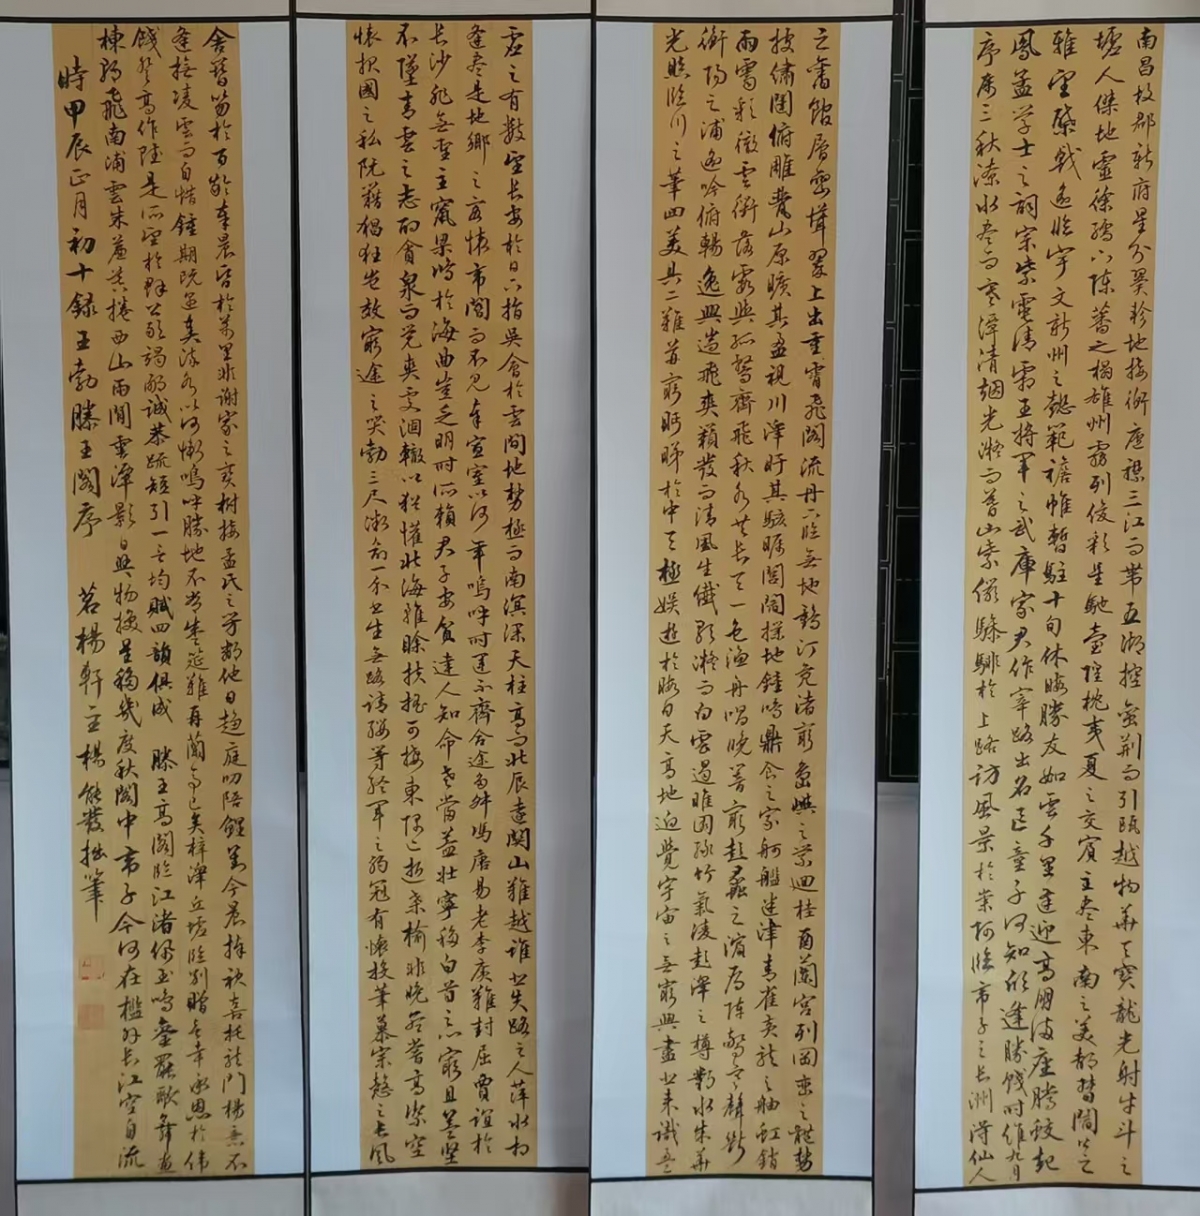 南昌故郡新府星分翼軫地接衡廬襟三江而帶五湖控蠻荊而引甌越物華天寶龍光射牛斗之
墟人傑地靈徐孺下陳蕃之榻雄州霧列俊彩星馳臺隍枕夷夏之交賓主盡東南之美都督閻公之
雅望棨戟遙臨宇文新州之懿範襜帷暫駐十旬休暇勝友如雲千里逢迎高朋滿座騰蛟起
鳳孟學士之詞宗紫電清霜王將軍之武庫家君作宰路出名區童子何知躬逢勝餞時維九月
序屬三秋潦水盡而寒潭清煙光凝而暮山紫儼驂騑於上路訪風景於崇阿臨帝子之長洲得仙人
之舊館層巒聳翠上出重霄飛閣流丹下臨無地鶴汀鳧渚窮島嶼之縈迴桂殿蘭宮列岡巒之體勢
披繡闥俯雕甍山原曠其盈視川澤盱其駭矚閭閻撲地鐘鳴鼎食之家舸艦迷津青雀黃龍之舳虹銷
雨霽彩徹雲衢落霞與孤鶩齊飛秋水共長天一色漁舟唱晚響窮彭蠡之濱雁陣驚寒聲斷
衡陽之浦遙吟俯暢逸興遄飛爽籟發而清風生纖歌凝而白雲遏睢園綠竹氣凌彭澤之樽鄴水朱華
光照臨川之筆四美具二難並窮眄睇於中天極娛遊於暇日天高地迥覺宇宙之無窮興盡悲來識盈
虛之有數望長安於日下指吳會於雲間地勢極而南溟深天柱高而北辰遠關山難越誰悲失路之人萍水相
逢盡是他鄉之客懷帝閽而不見奉宣室以何年嗚呼時運不齊命途多舛馮唐易老李廣難封屈賈誼於
長沙非無聖主竄梁鴻於海曲豈乏明時所賴君子安貧達人知命老當益壯寧移白首之心窮且益堅
不墜青雲之志酌貪泉而覺爽處涸轍以猶懽北海雖賒扶搖可接東隅已逝桑榆非晚孟嘗高潔空
懷報國之私阮籍猖狂豈效窮途之哭勃三尺微命一介書生無路請纓等終軍之弱冠有懷投筆慕宗慤之長風
舍簪笏於百齡奉晨昏於萬里非謝家之寶樹接孟氏之芳鄰他日趨庭叨陪鯉對今晨捧袂喜托龍門楊意不
逢撫凌雲而自惜鍾期既遇奏流水以何慚嗚呼勝地不常盛筵難再蘭亭已矣梓澤丘墟臨別贈言幸承恩於偉
餞登高作賦是所望於群公敢竭鄙誠恭疏短引一言均賦四韻俱成 滕王高閣臨江渚佩玉鳴鸞罷歌舞畫
棟朝飛南浦雲朱簾暮捲西山雨閒雲潭影日物換星移幾度秋閣中帝子今何在檻外長江空自流
時甲辰正月初十錄王勃滕王閣序 茗楊軒主楊能發拙筆